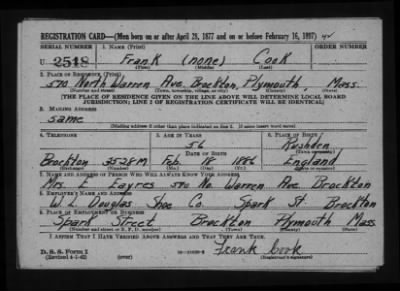 REGISTRATION CARD—(Men born on or after April 28, 1877 and on or before February 16, 1897)
SERIAL NUMBER 1. NAME (Print) ORDER NUMBER
U 2518 Frank (none) Cook
(First) (Middle) (Last)
2. PLACE OF RESIDENCE (Print)
590 North Warren Ave. Brockton, Plymouth, Mass.
(Number and street) (Town, township, village, or city) (County) (State)
[THE PLACE OF RESIDENCE GIVEN ON THE LINE ABOVE WILL DETERMINE LOCAL BOARD
JURISDICTION; LINE 2 OF REGISTRATION CERTIFICATE WILL BE IDENTICAL]
3. MAILING ADDRESS
same
[Mailing address if other than place indicated on line 2. If same insert word same]
4. TELEPHONE 5. AGE IN YEARS 6. PLACE OF BIRTH
56 Rushden
DATE OF BIRTH (Town or county)
Brockton 3528M Feb. 18 1886 England
(Exchange) (Number) (Mo.) (Day) (Yr.) (State or country)
7. NAME AND ADDRESS OF PERSON WHO WILL ALWAYS KNOW YOUR ADDRESS
Mrs. Eayres 590 No. Warren Ave. Brockton
8. EMPLOYER'S NAME AND ADDRESS
W. L. Douglas Shoe Co. Spark St. Brockton
9. PLACE OF EMPLOYMENT OR BUSINESS
Spark Street Brockton Plymouth Mass
(Number and street or R. F. D. number) (Town) (County) (State)
I AFFIRM THAT I HAVE VERIFIED ABOVE ANSWERS AND THAT THEY ARE TRUE.
Frank Cook
D. S. S. Form 1
(Revised 4-1-42) (over) (Registrant's signature)